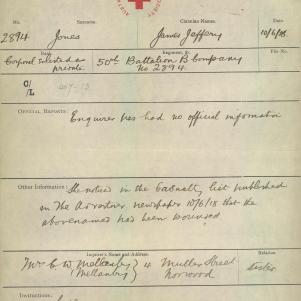 No.
Surname.
Christian Names.
2894
Jones
James Jeffery
10/6/18
Rank
Regiment, &c.
File No.
Corporal enlisted as
private
50th Battalion B Company
No 2894
C/
L
OFFICIAL REPORTS:
Enquirer has had no official information
Other Information:
She noticed in the Casualty list published
in The Advertiser newspaper 10/6/18 that the
abovenamed had been wounded
Inquirer's Name and Address:
Relation
Mrs E W Mellanby
(Mellanby)
4
Muller Street
Norwood
sister
Instructions: